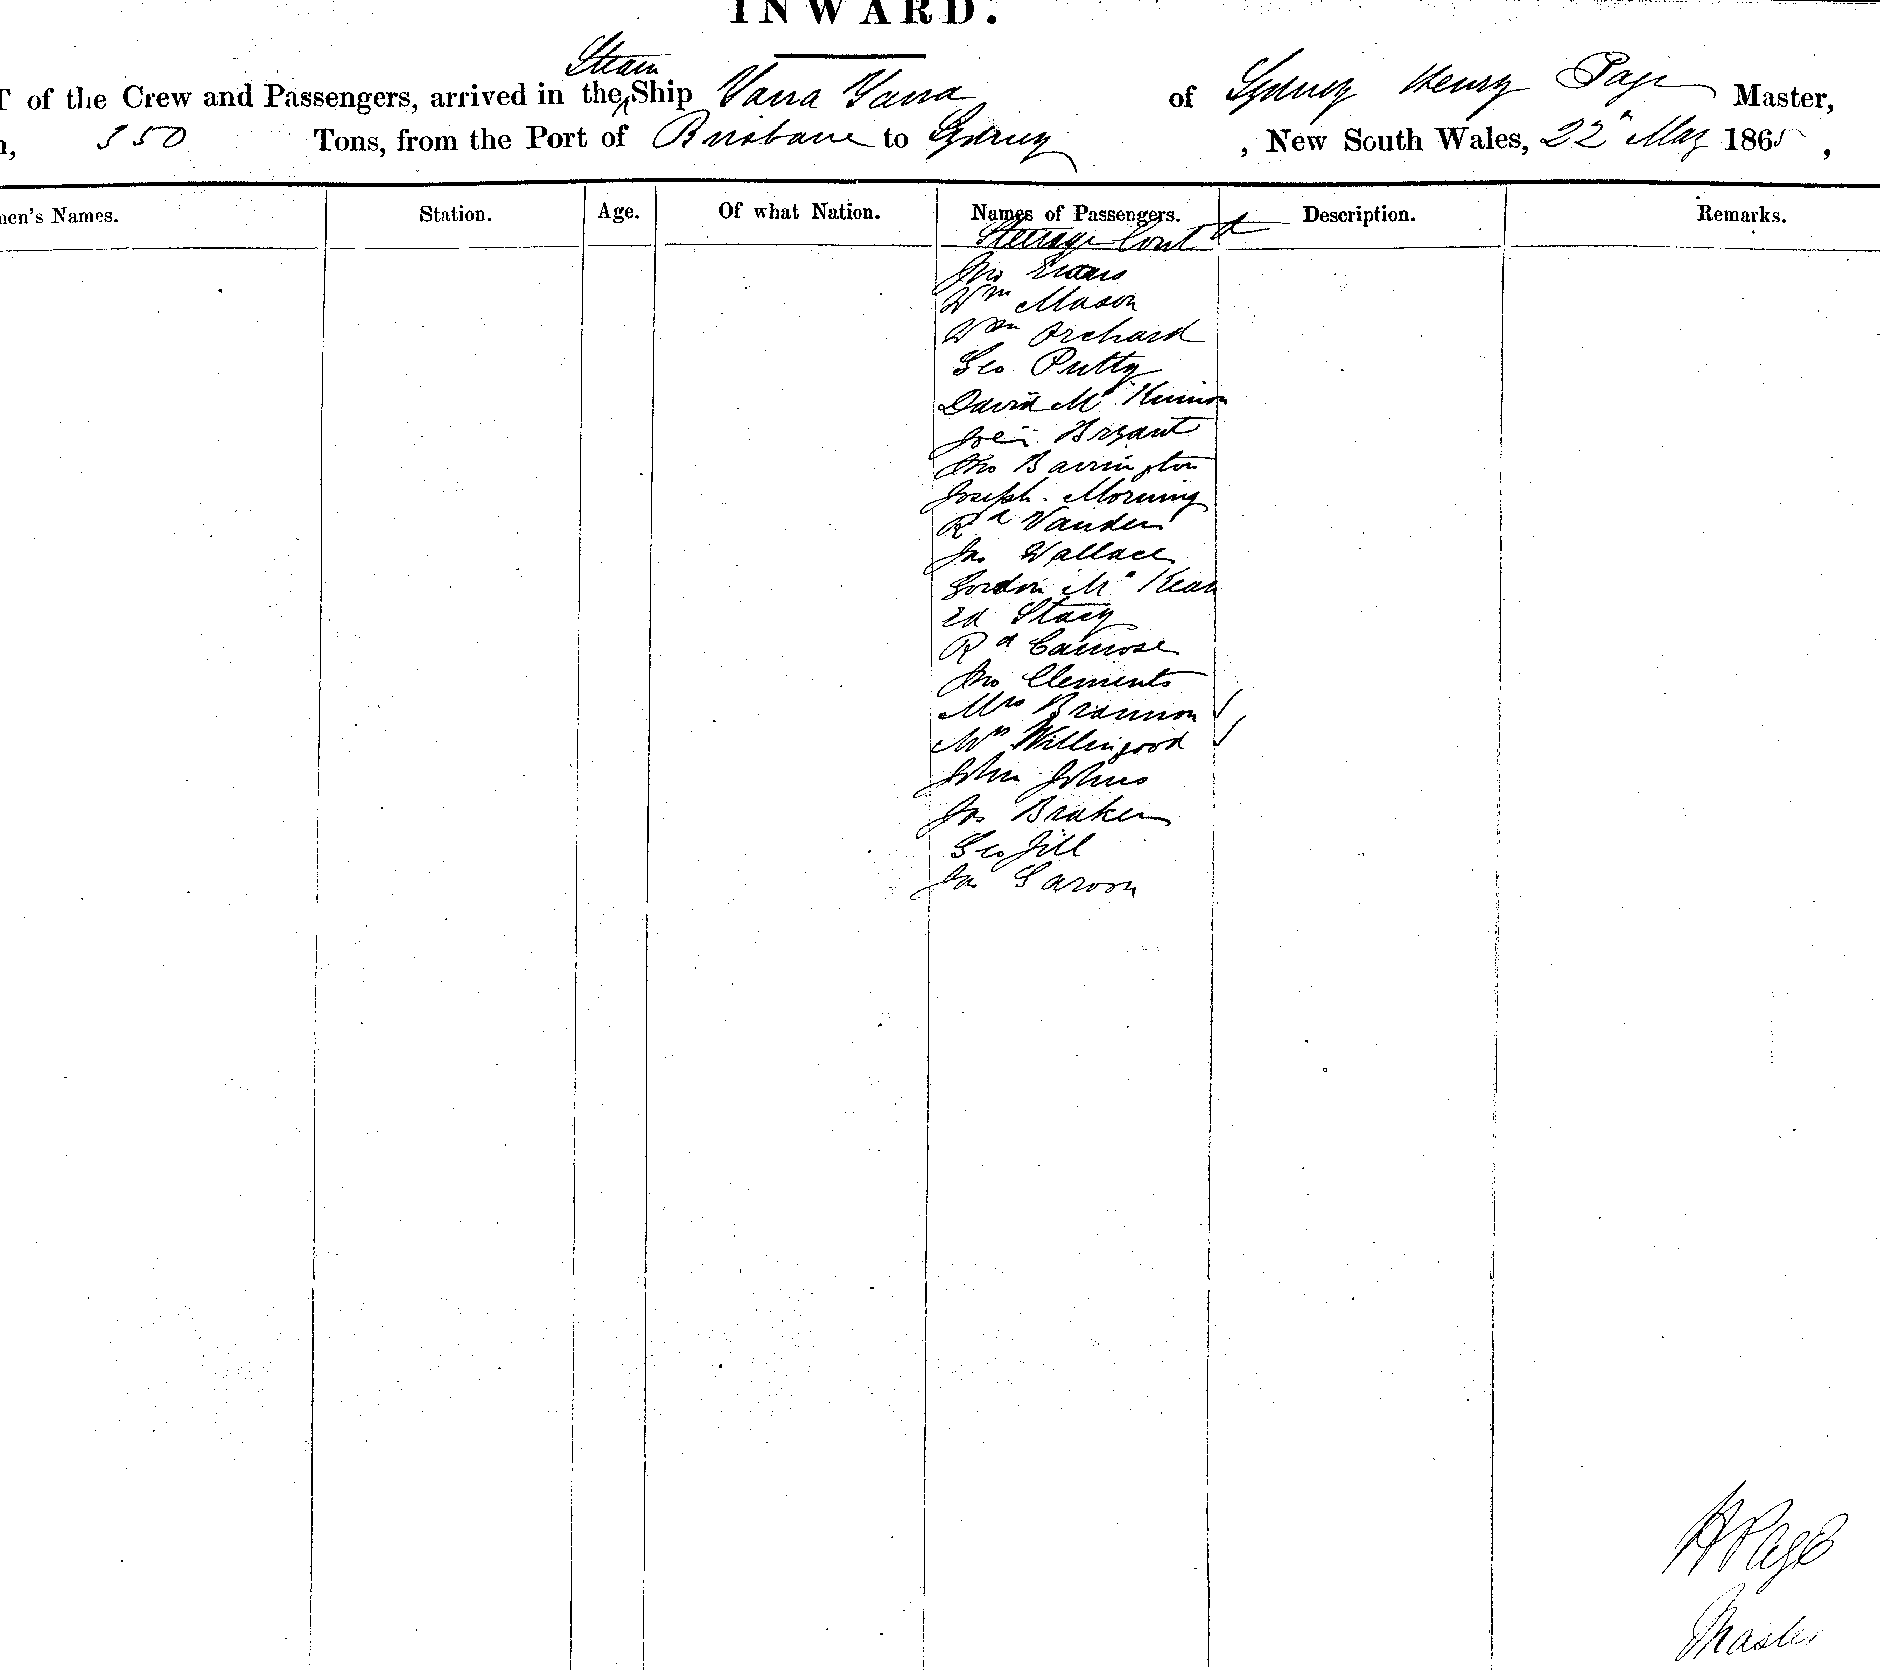 INWARD.
Steam
of the Crew and Passengers, arrived in the Ship Yarra Yarra of Sydney Henry Page Master,
350 Tons, from the Port of Brisbane to Sydney, New South Wales, 22" May 1865,
men's Names. Station. Age. Of what Nation. Names of Passengers. Description. Remarks.
Steerage Contd
Jno Evans
Wm Mason
Wm Orchard
Geo Putty
David Mc Kinnon
Bryant
Jno Barrington
Joseph Morning
Rd Vanden
Jas Wallace
Gordon Mc Kean
Ed Stacy
Rd Camrose
Jno Clements
Mrs Brannon
Mrs Willingood
John Johns
Jas Braken
Geo Jill
Jas Garoon
H Page
Master